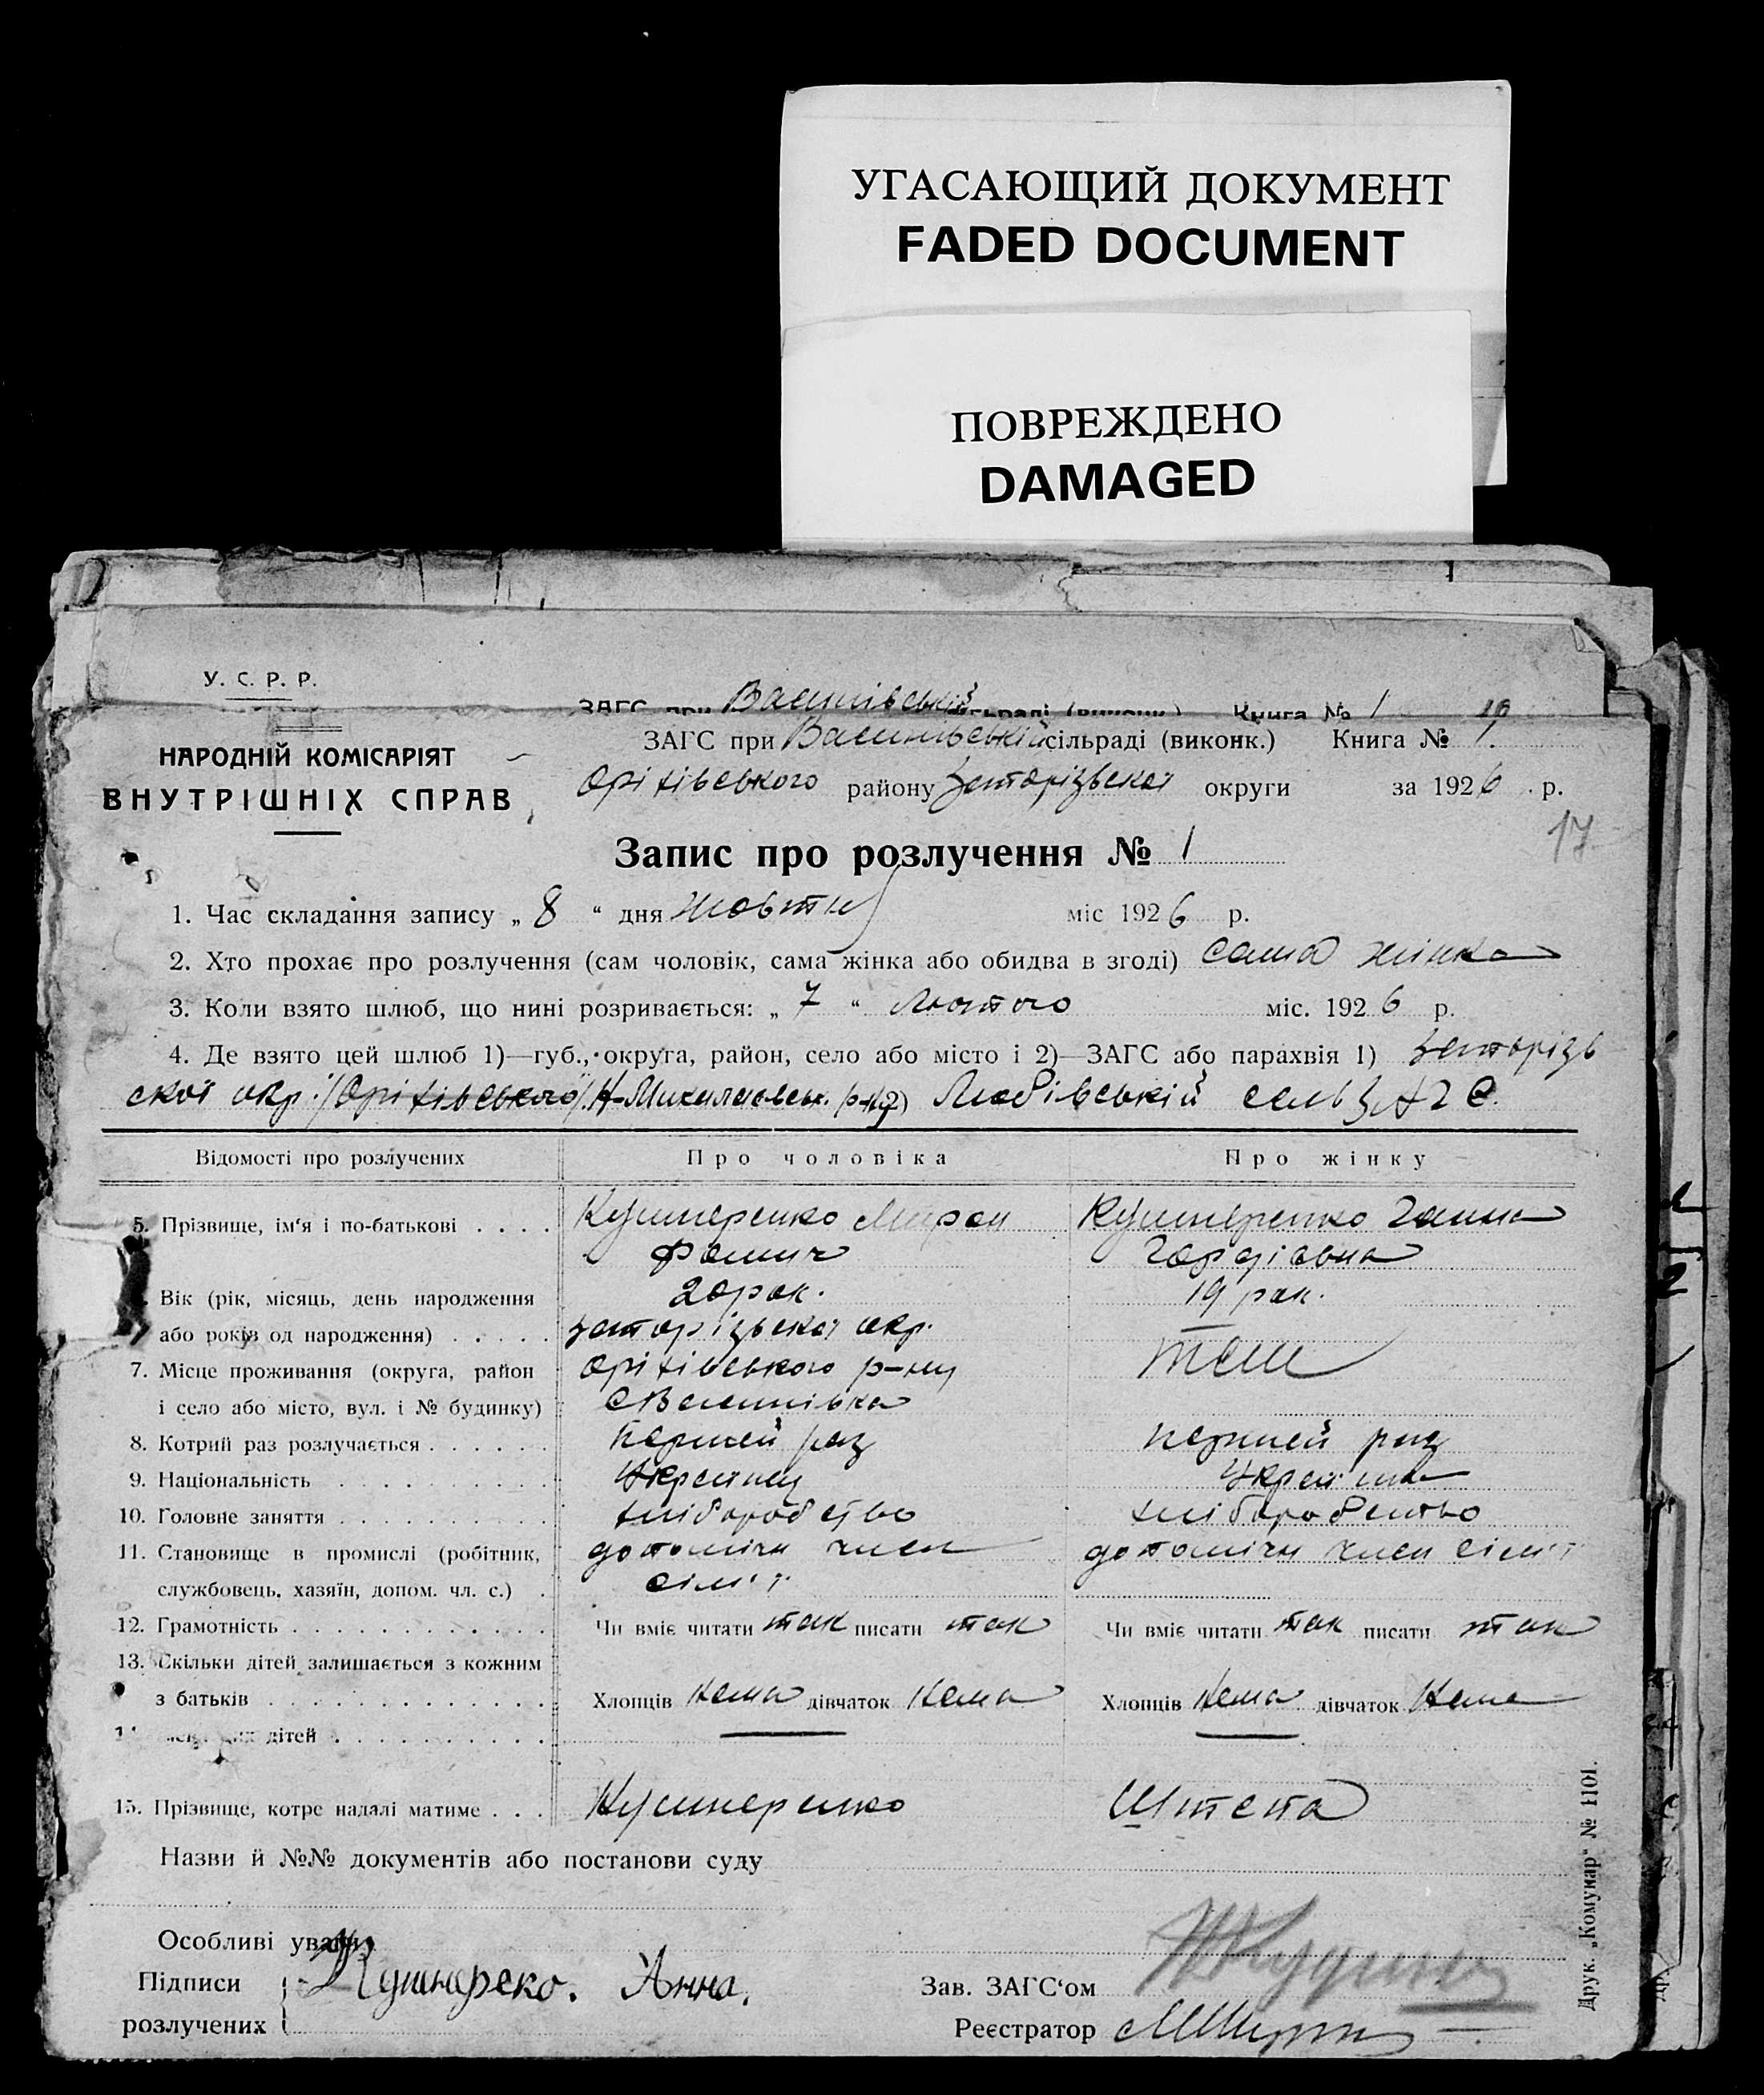 УГАСАЮЩИЙ ДОКУМЕНТ
FADED DOCUMENT
ПОВРЕЖДЕНО
DAMAGED
У. С. Р. Р.
НАРОДНІЙ КОМІСАРІЯТ
ВНУТРІШНІХ СПРАВ
Книга № 1
ЗАГС при Василівській сільраді (виконк.) Книга № 1
Оріхівського району Запорізької округи за 1926 р.
17
Запис про розлучення № 1
1. Час складання запису „ 8 “ дня жовтня міс 1926 р.
2. Хто прохає про розлучення (сам чоловік, сама жінка або обидва в згоді) сама жінка
3. Коли взято шлюб, що нині розривається: „ 7 “ Лютого міс. 1926 р.
4. Де взято цей шлюб 1)—губ., округа, район, село або місто і 2)—ЗАГС або парахвія 1) Запорізь
скої окр. /Оріхівського/ 2) Любівській
Відомості про розлучених Про чоловіка Про жінку
5. Прізвище, ім‘я і по-батькові . . . . Кушнеренко Мирон Кушнеренко Ганна
Фомич Гордіевна
Вік (рік, місяць, день народження 20 рок. 19 рок.
або років од народження) . . . . . Запорізької окр.
7. Місце проживання (округа, район Оріхівського р-ну теш
і село або місто, вул. і № будинку) с Василівка
8. Котрий раз розлучається . . . . . . перший раз перший раз
9. Національність . . . . . . . . . . Українец Українка
10. Головне заняття . . . . . . . . . . хліборобство хліборобство
11. Становище в промислі (робітник, допоміжн член допоміжн член сім'ї
службовець, хазяїн, допом. чл. с.) . сім'ї
12. Грамотність . . . . . . . . . . . . Чи вміє читати так писати так Чи вміє читати так писати так
13. Скільки дітей залишається з кожним
з батьків . . . . . . . . . . . . . Хлопців Нема дівчаток Нема Хлопців Нема дівчаток Нема
дітей . . . . . . . . . .
15. Прізвище, котре надалі матиме . . . Кушнеренко Штепа
Назви й №№ документів або постанови суду
Особливі уваги
Підписи Кушнереко. Анна. Зав. ЗАГС‘ом
розлучених Реєстратор
Друк. „Комунар“ № 1101.